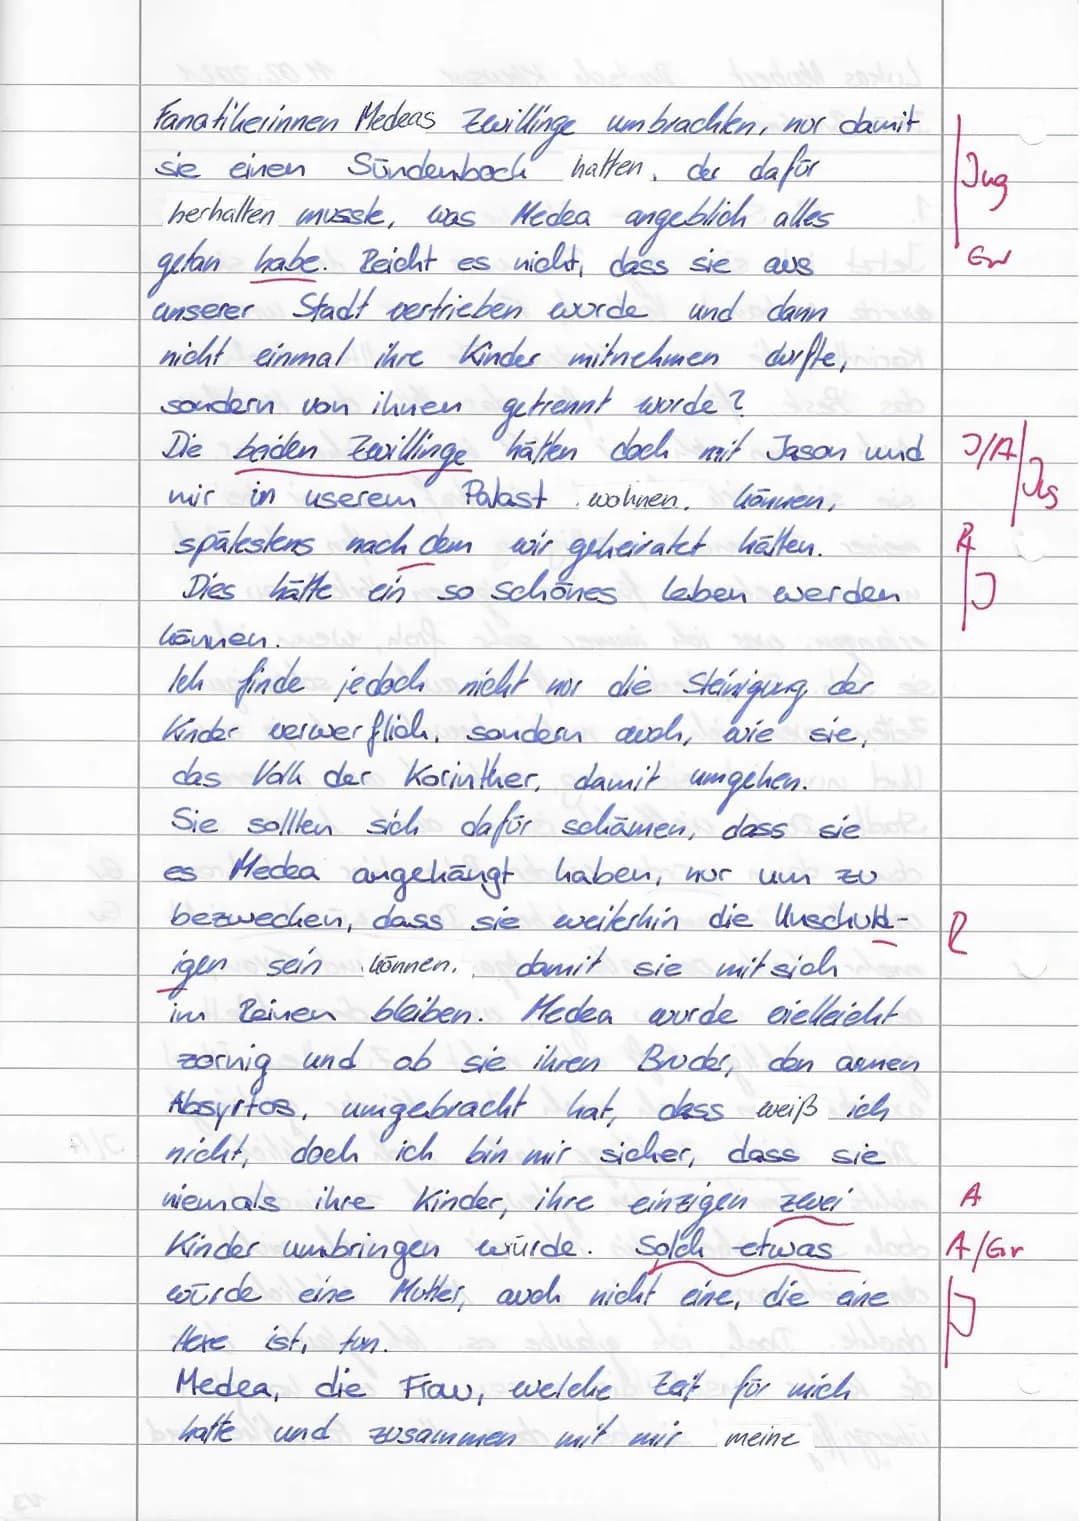 Fanatikerinnen Medeas Zwillinge umbrachten, nur damit
sie einen Sündenbock hatten, der dafür
herhalten musste, was Medea angeblich alles
getan habe. Reicht es nicht, dass sie aus
unserer Stadt vertrieben wurde und dann
nicht einmal ihre Kinder mitnehmen durfte,
sondern von ihnen getrennt wurde?
Die beiden Zwillinge hätten doch mit Jason und
mir in userem Palast wohnen können,
spätestens nach dem wir geheiratet hätten.
Dies hätte ein so schönes Leben werden
können.
Ich finde jedoch nicht nur die Steinigung der
Kinder verwerflich, sondern auch, wie sie,
das Volk der Korinther, damit umgehen.
Sie sollten sich dafür schämen, dass sie
es Medea angehängt haben, nur um zu
bezwecken, dass sie weiterhin die Unschuld-
igen sein können, damit sie mit sich
im Reinen bleiben. Medea wurde vielleicht
zornig und ob sie ihren Bruder, den armen
Absyrtos, umgebracht hat, dass weiß ich
nicht, doch ich bin mir sicher, dass sie
niemals ihre Kinder, ihre einzigen zwei
Kinder umbringen würde. Solch etwas
würde eine Mutter, auch nicht eine, die eine
Hexe ist, tun.
Medea, die Frau, welche Zeit für mich
hatte und zusammen mit mir meine
Gr
J/A
R
J
R
A
A/Gr
J